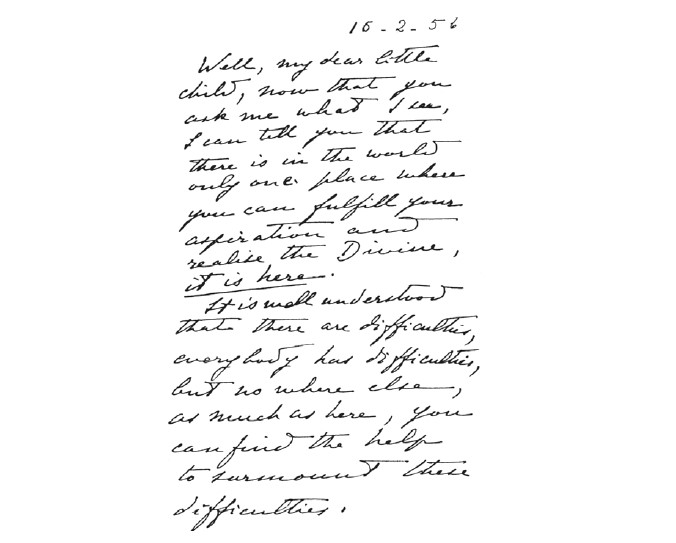 16-2-56
Well, my dear little
child, now that you
ask me what I see,
I can tell you that
there is in the world
only one place where
you can fulfill your
aspiration and
realise the Divine,
it is here.
It is well understood
that there are difficulties,
everybody has difficulties,
but no where else,
as much as here, you
can find the help
to surmount these
difficulties.